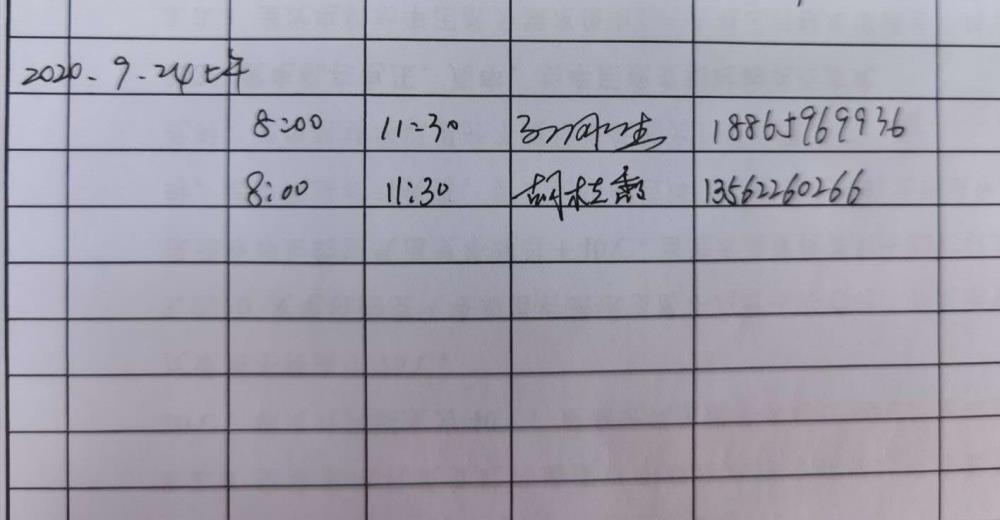 2020.9.24上午
8:00 11:30 18865969936
8:00 11:30 胡桂香 13562260266